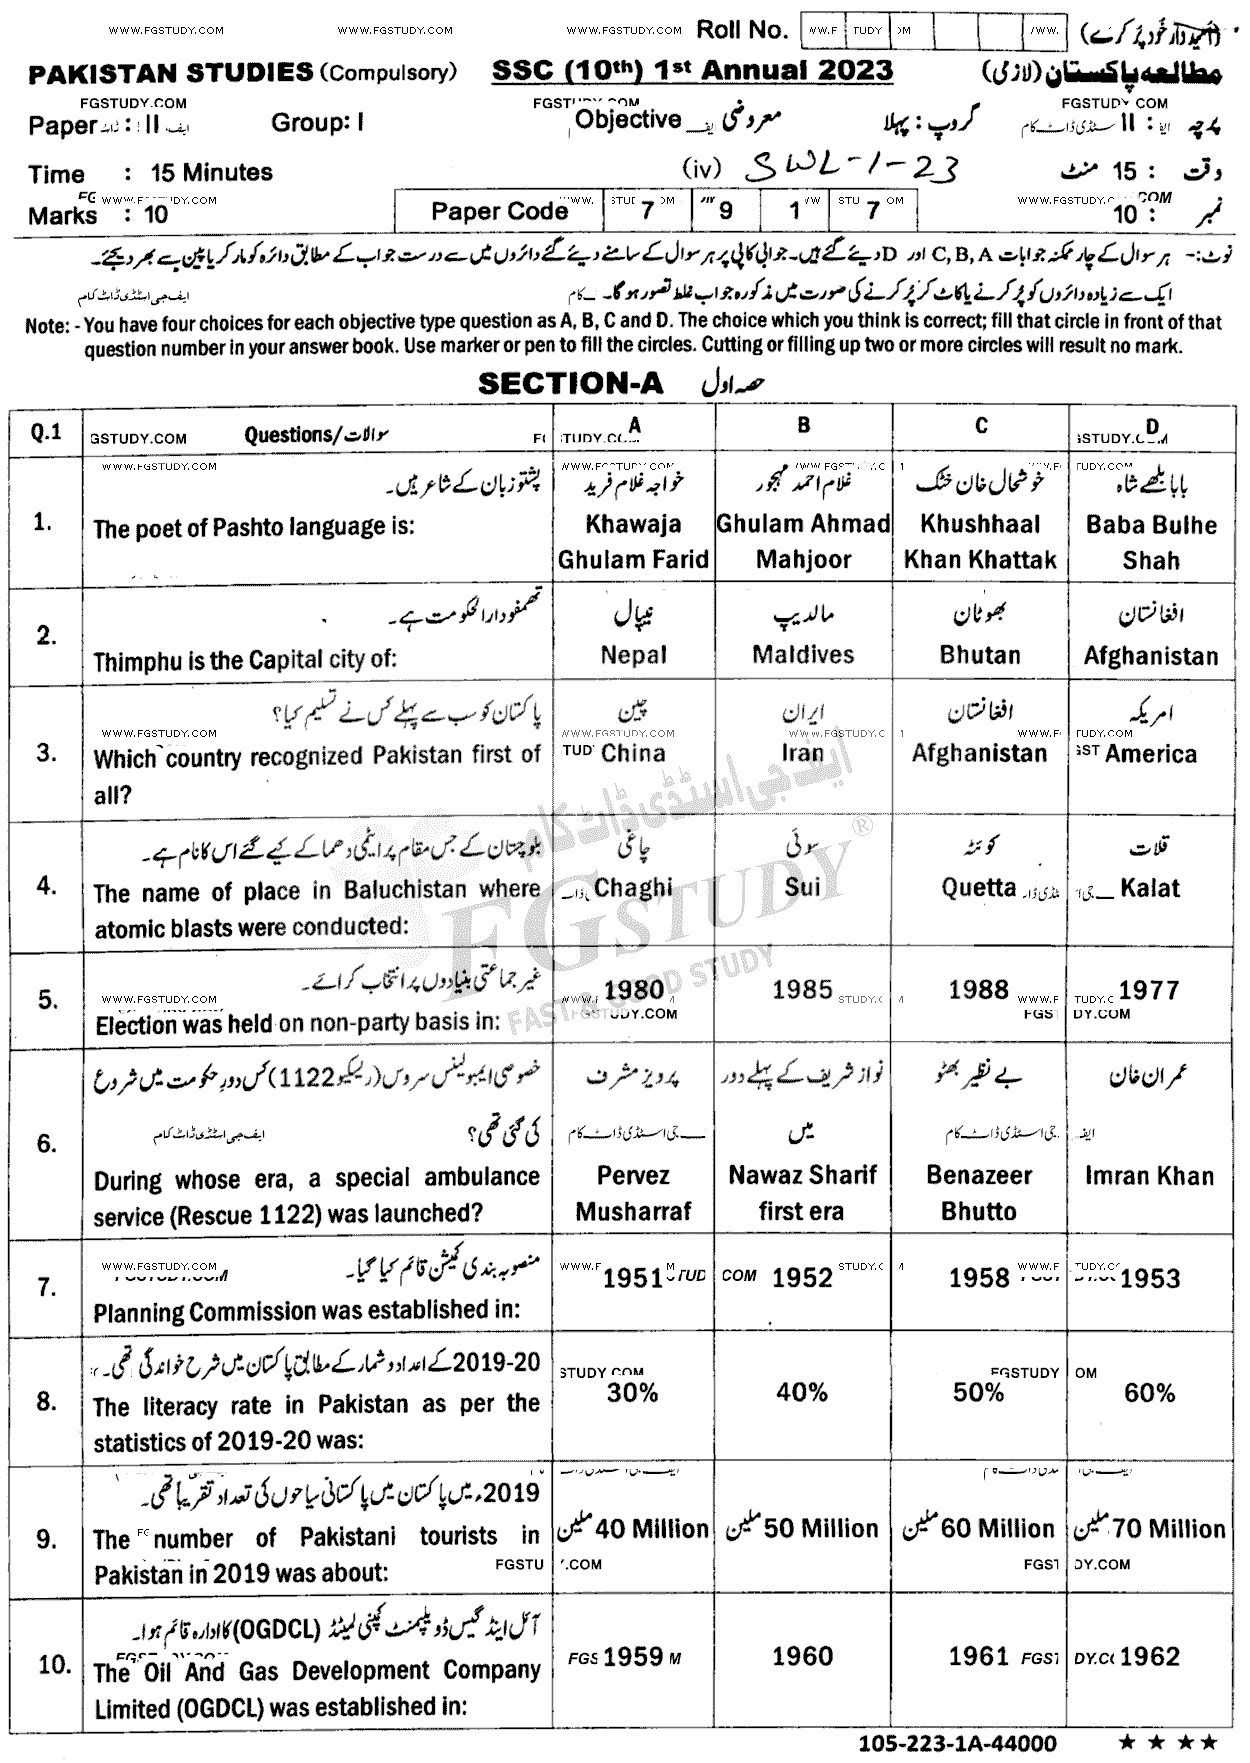 WWW.FGSTUDY.COM WWW.FGSTUDY.COM WWW.FGSTUDY.COM Roll No. (امیدوار خود پُر کرے)
PAKISTAN STUDIES (Compulsory) SSC (10th) 1st Annual 2023 مطالعہ پاکستان (لازمی)
FGSTUDY.COM FGSTUDY.COM FGSTUDY.COM
Paper : II Group: I Objective معروضی گروپ : پہلا پرچہ : II
Time : 15 Minutes (iv) SWL-1-23 وقت : 15 منٹ
Marks : 10 Paper Code 7 9 1 7 نمبر : 10
نوٹ:- ہر سوال کے چار ممکنہ جوابات C, B, A اور D دیئے گئے ہیں۔ جوابی کاپی پر ہر سوال کے سامنے دیئے گئے دائروں میں سے درست جواب کے مطابق دائرہ کو مارکر یا پین سے بھر دیجئے۔
ایک سے زیادہ دائروں کو پُر کرنے یا کاٹ کر پُر کرنے کی صورت میں مذکورہ جواب غلط تصور ہو گا۔
Note: - You have four choices for each objective type question as A, B, C and D. The choice which you think is correct; fill that circle in front of that
question number in your answer book. Use marker or pen to fill the circles. Cutting or filling up two or more circles will result no mark.
SECTION-A حصہ اول
Q.1 Questions/سوالات A B C D
1. پشتو زبان کے شاعر ہیں۔ خواجہ غلام فرید غلام احمد مہجور خوشحال خان خٹک بابا بلھے شاہ
The poet of Pashto language is: Khawaja Ghulam Ahmad Khushhaal Baba Bulhe
Ghulam Farid Mahjoor Khan Khattak Shah
2. تھمفو دارالحکومت ہے۔ نیپال مالدیپ بھوٹان افغانستان
Thimphu is the Capital city of: Nepal Maldives Bhutan Afghanistan
3. پاکستان کو سب سے پہلے کس نے تسلیم کیا؟ چین ایران افغانستان امریکہ
Which country recognized Pakistan first of China Iran Afghanistan America
all?
4. بلوچستان کے جس مقام پر ایٹمی دھماکے کیے گئے اس کا نام ہے۔ چاغی سوئی کوئٹہ قلات
The name of place in Baluchistan where Chaghi Sui Quetta Kalat
atomic blasts were conducted:
5. غیر جماعتی بنیادوں پر انتخاب کرائے۔ 1980 1985 1988 1977
Election was held on non-party basis in:
6. خصوصی ایمبولینس سروس (ریسکیو 1122) کس دورِ حکومت میں شروع پرویز مشرف نواز شریف کے پہلے دور بے نظیر بھٹو عمران خان
کی گئی تھی؟ میں
During whose era, a special ambulance Pervez Nawaz Sharif Benazeer Imran Khan
service (Rescue 1122) was launched? Musharraf first era Bhutto
7. منصوبہ بندی کمیشن قائم کیا گیا۔ 1951 1952 1958 1953
Planning Commission was established in:
8. 2019-20 کے اعداد و شمار کے مطابق پاکستان میں شرح خواندگی تھی۔ 30% 40% 50% 60%
The literacy rate in Pakistan as per the
statistics of 2019-20 was:
9. 2019ء میں پاکستان میں پاکستانی سیاحوں کی تعداد تقریباً تھی۔
The number of Pakistani tourists in 40 Million ملین 50 Million ملین 60 Million ملین 70 Million ملین
Pakistan in 2019 was about:
10. آئل اینڈ گیس ڈویلپمنٹ کمپنی لمیٹڈ (OGDCL) کا ادارہ قائم ہوا۔ 1959 1960 1961 1962
The Oil And Gas Development Company
Limited (OGDCL) was established in:
ایف جی اسٹڈی ڈاٹ کام
FGSTUDY ®
FAST & GOOD STUDY
105-223-1A-44000 ★ ★ ★ ★